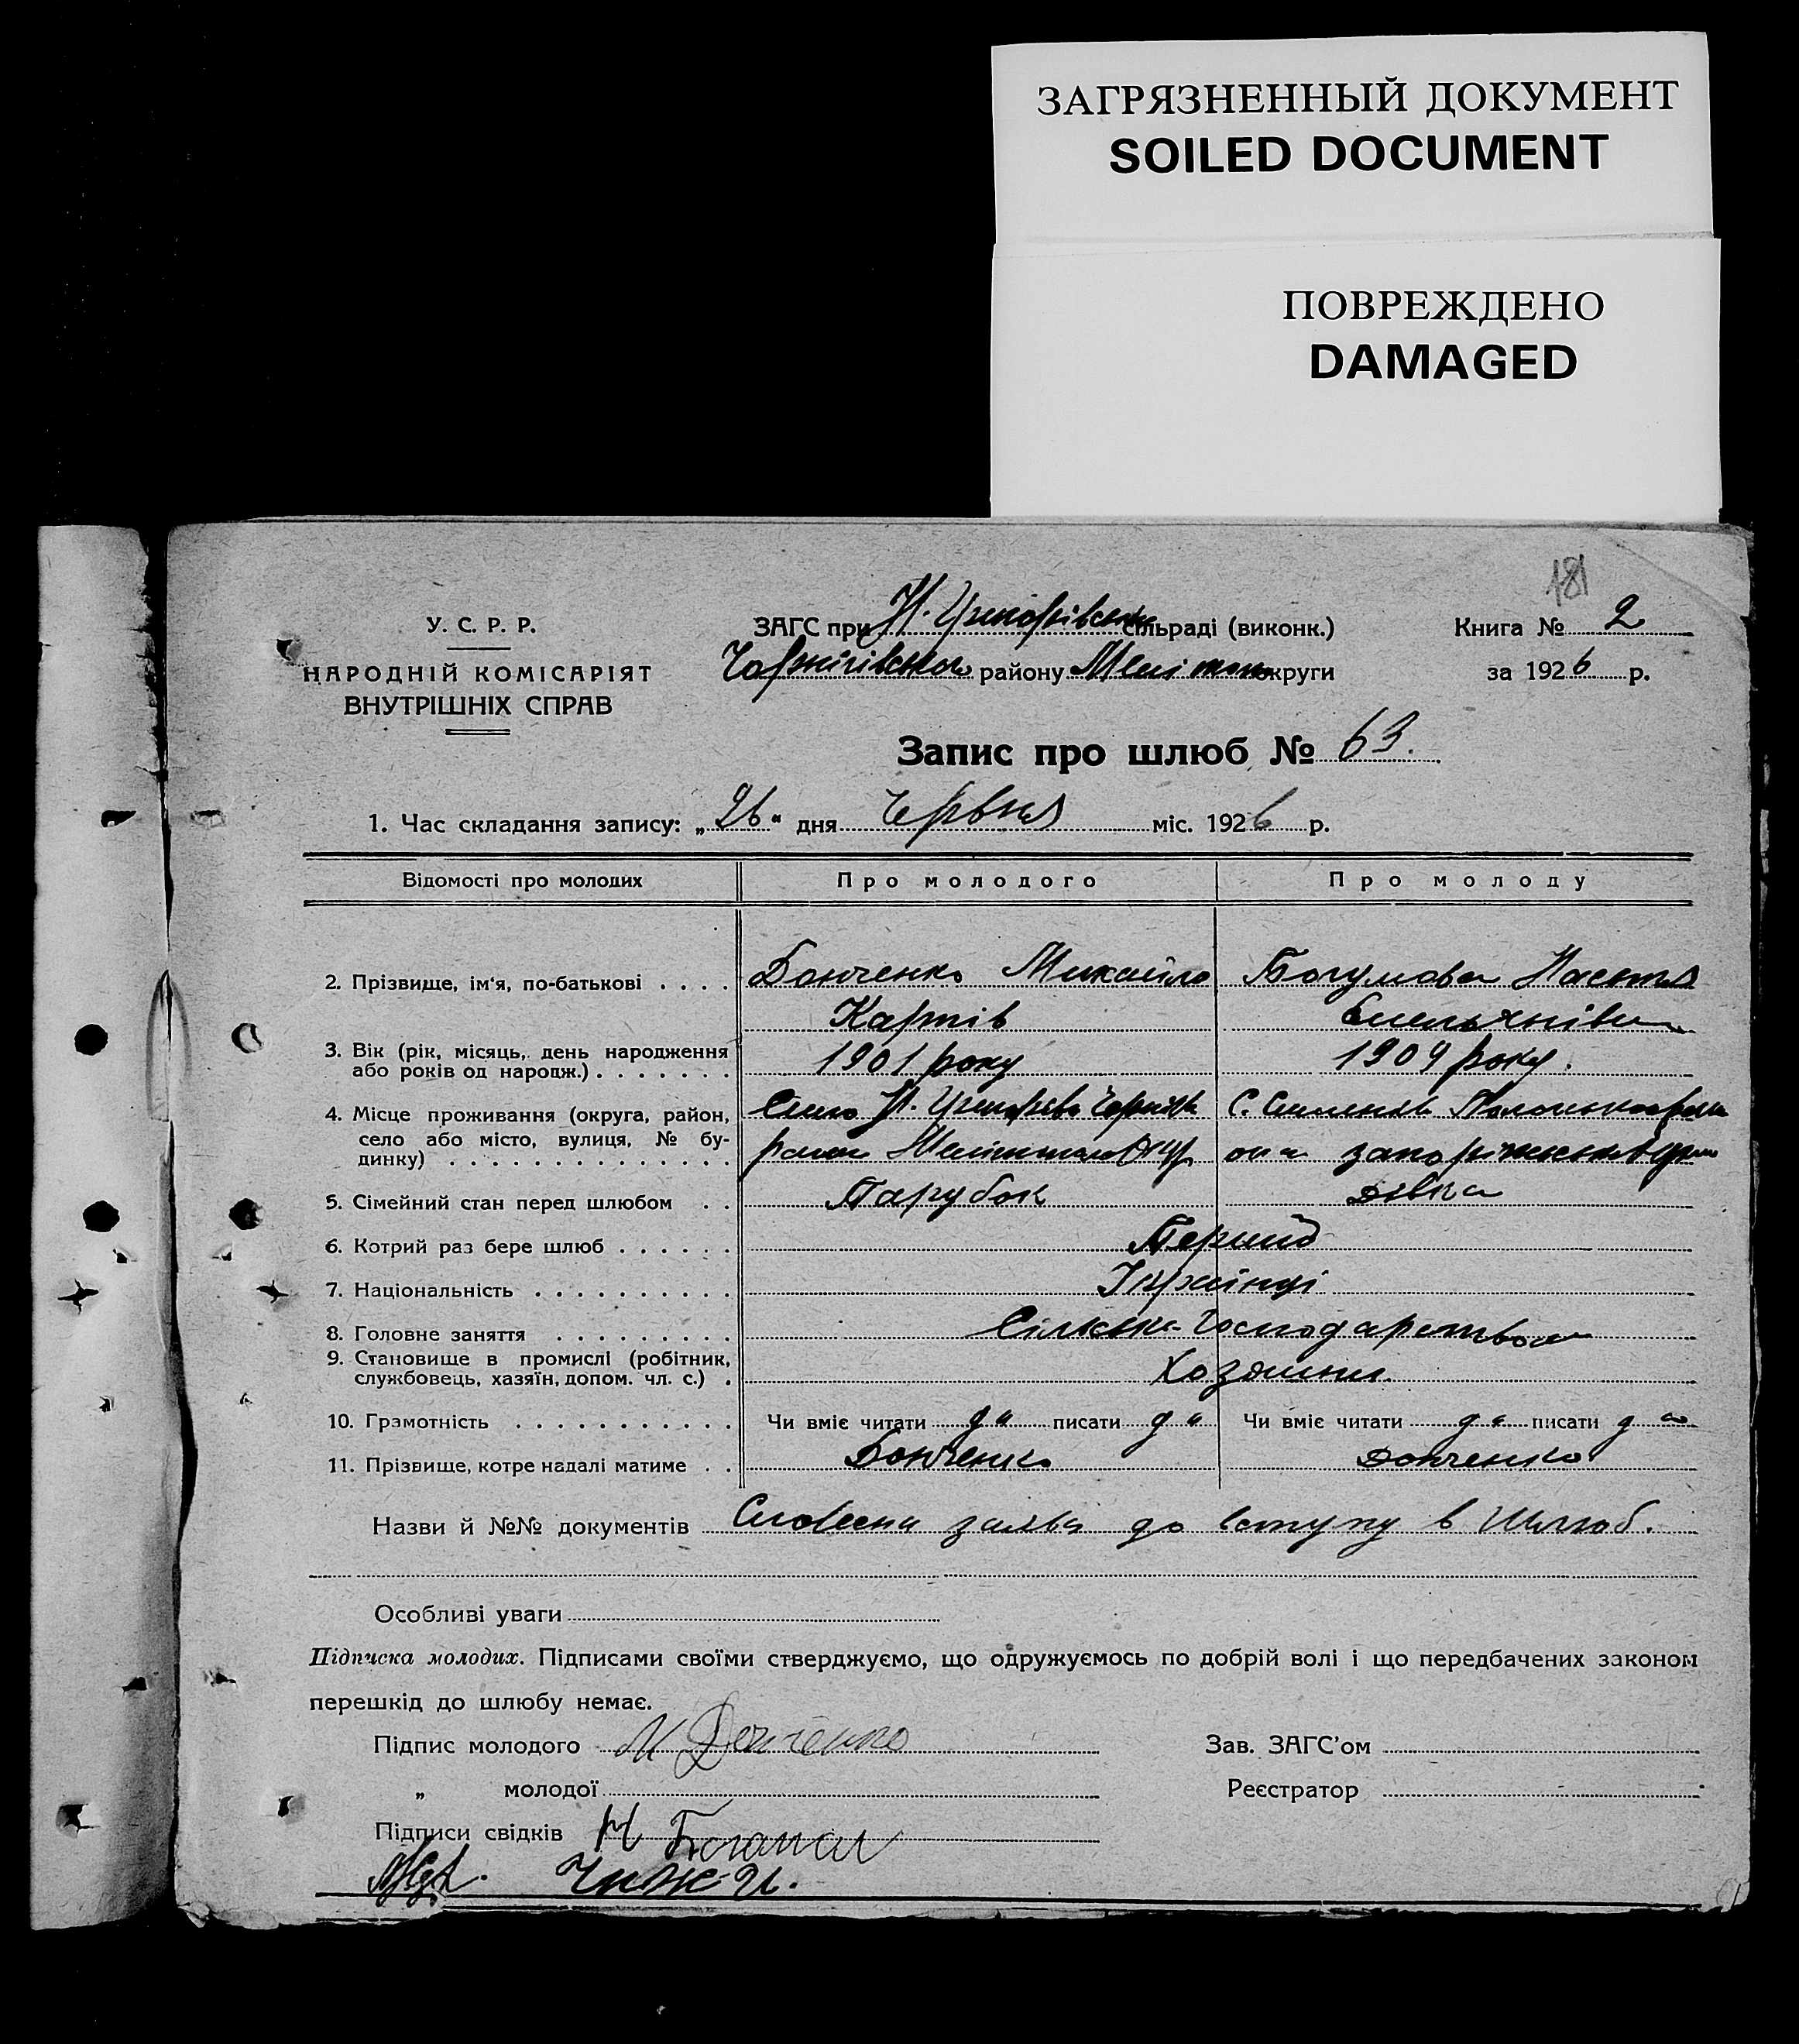 ЗАГРЯЗНЕННЫЙ ДОКУМЕНТ
SOILED DOCUMENT
ПОВРЕЖДЕНО
DAMAGED
181
У. С. Р. Р.
НАРОДНІЙ КОМІСАРІЯТ
ВНУТРІШНІХ СПРАВ
ЗАГС при сільраді (виконк.)
району округи
Книга № 2
за 1926 р.
Запис про шлюб № 63.
1. Час складання запису: „26" дня Червня міс. 1926 р.
Відомості про молодих Про молодого Про молоду
2. Прізвище, ім'я, по-батькові . . . . Донченко Михайло Настя
Карпів Емельянівна
3. Вік (рік, місяць, день народження
або років од народж.) . . . . . . . 1901 року 1909 року.
4. Місце проживання (округа, район,
село або місто, вулиця, № бу-
динку) . . . . . . . . . . . . . .
Село
С.
5. Сімейний стан перед шлюбом . . Парубок дівка
6. Котрий раз бере шлюб . . . . . . Перший
7. Національність . . . . . . . . . . Українці
8. Головне заняття . . . . . . . . . Сільське Господарство
9. Становище в промислі (робітник,
службовець, хазяїн, допом. чл. с.) .
10. Грамотність . . . . . . . . . . . Чи вміє читати да писати да Чи вміє читати да писати да
11. Прізвище, котре надалі матиме . . Донченко Донченко
Назви й №№ документів Словесна заява до вступу в Шлюб.
Особливі уваги
Підписка молодих. Підписами своїми стверджуємо, що одружуємось по добрій волі і що передбачених законом
перешкід до шлюбу немає.
Підпис молодого М Донченко
Зав. ЗАГС'ом
„ молодої
Реєстратор
Підписи свідків